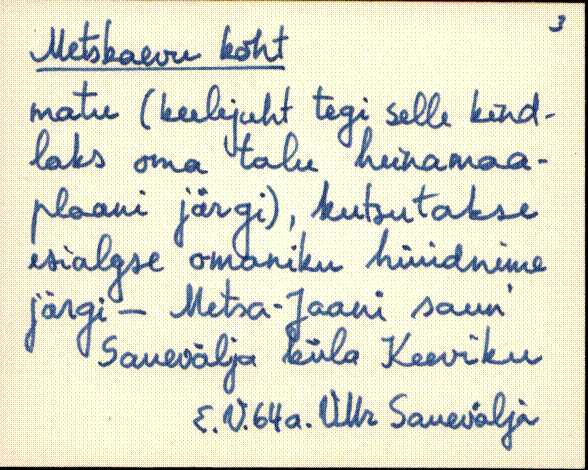 3
Metskaevu koht
matu (keelejuht tegi selle kind-
laks oma talu heinamaa-
plaani järgi), kutsutakse
esialgse omaniku hüüdnime
järgi – Metsa-Jaani saun
Sauevälja küla Keeviku
E.V. 64 a. Sauevälja